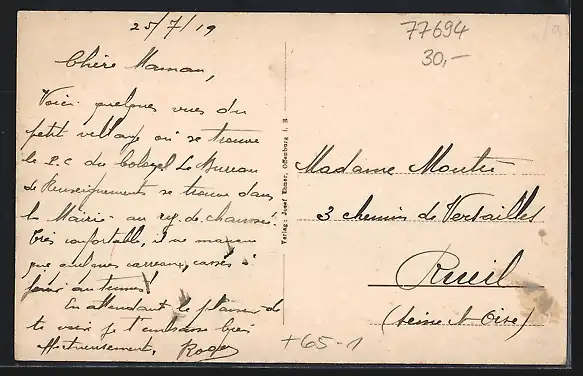 25/7/19
Chère Maman,
Voici quelques vues du
petit village où se trouve
le P.C du Colonel Le Bureau
de Renseignements se trouve dans
la Mairie au rez. de chaussée.
Très confortable, il ne manque
que quelques carreaux, cassés à
En attendant le plaisir de
te voir je t'embrasse très
affectueusement, Roger
Verlag: Josef Ebner, Offenburg i. B.
77694
30,-
Madame Moutre
3 chemin de Versailles
Rueil
(Seine et Oise)
+65-1